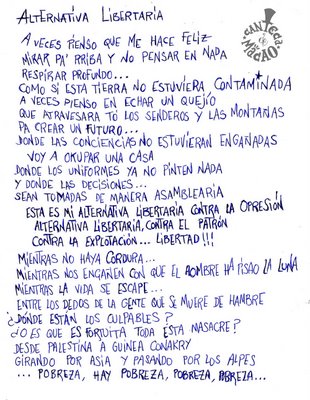 ALTERNATIVA LIBERTARIA
CANTECA DE MACAO
A VECES PIENSO QUE ME HACE FELIZ
MIRAR PA' RRIBA Y NO PENSAR EN NADA
RESPIRAR PROFUNDO...
COMO SI ESTA TIERRA NO ESTUVIERA CONTAMINADA
A VECES PIENSO EN ECHAR UN QUEJÍO
QUE ATRAVESARA TÓ LOS SENDEROS Y LAS MONTAÑAS
PA CREAR UN FUTURO...
DONDE LAS CONCIENCIAS NO ESTUVIERAN ENGAÑADAS
VOY A OKUPAR UNA CASA
DONDE LOS UNIFORMES YA NO PINTEN NADA
Y DONDE LAS DECISIONES...
SEAN TOMADAS DE MANERA ASAMBLEARIA
ESTA ES MI ALTERNATIVA LIBERTARIA CONTRA LA OPRESIÓN
ALTERNATIVA LIBERTARIA, CONTRA EL PATRÓN
CONTRA LA EXPLOTACIÓN... LIBERTAD!!!
MIENTRAS NO HAYA CORDURA...
MIENTRAS NOS ENGAÑEN CON QUE EL HOMBRE HA PISAO LA LUNA
MIENTRAS LA VIDA SE ESCAPE...
ENTRE LOS DEDOS DE LA GENTE QUE SE MUERE DE HAMBRE
¿DÓNDE ESTÁN LOS CULPABLES?
¿O ES QUE ES FORTUITA TODA ESTA MASACRE?
DESDE PALESTINA A GUINEA CONAKRY
GIRANDO POR ASIA Y PASANDO POR LOS ALPES
... POBREZA, HAY POBREZA, POBREZA, POBREZA...